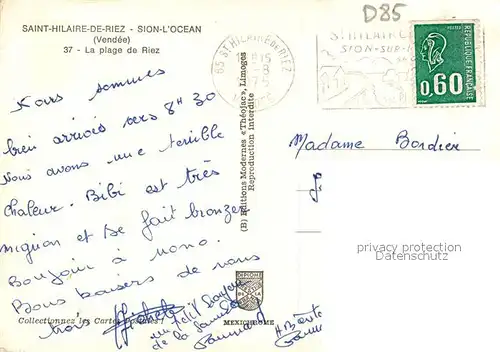 D85
SAINT-HILAIRE-DE-RIEZ - SION-L'OCEAN
(Vendée)
37 - La plage de Riez
85 ST HILAIRE DE RIEZ
ST HILAIRE
SION-SUR-
0,60
REPUBLIQUE FRANÇAISE
Nous sommes
bien arrivés vers 8H 30
Nous avons une terrible
chaleur. Bibi est très
mignon et se fait bronzer
Bonjour à nono.
Bons baisers de nous
trois
du petit
de la
Madame Bordier
privacy protection
watermark
(B) Editions Modernes «Théojac», Limoges
Reproduction interdite
MEXICHROME
Collectionnez les Cartes Postales !